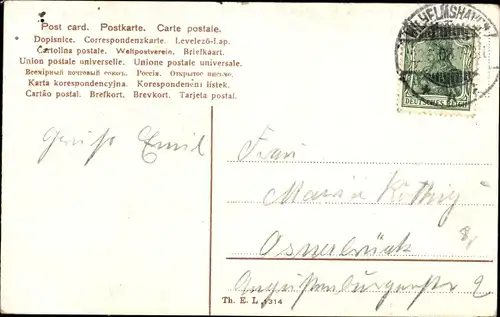 Post card. Postkarte. Carte postale.
Dopisnice. Correspondenzkarte. Levelező-Lap.
Cartolina postale. Weltpostverein. Briefkaart.
Union postale universelle. Unione postale universale.
Всемірный почтовый союзъ. Россія. Открытое письмо.
Karta korespondencyjna. Korespondenční lístek.
Cartão postal. Brefkort. Brevkort. Tarjeta postal.
WILHELMSHAVEN
DEUTSCHES REICH
Gruss Emil
Frau
Maria
Osnabrück
Augustenburgerstr 2
Th. E. L. 1314